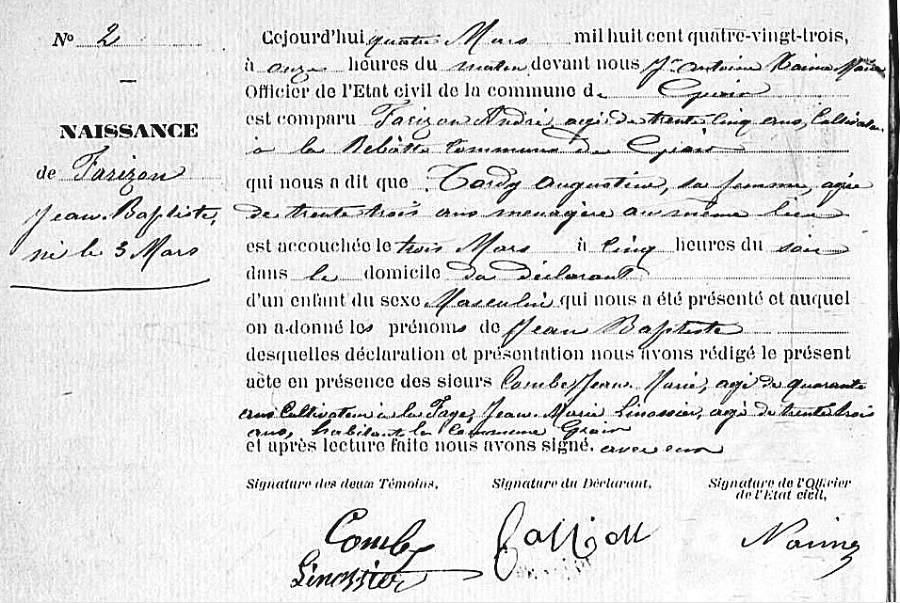 N° 2
NAISSANCE
de Farizon
Jean-Baptiste,
né le 3 Mars
Cejourd'hui quatre Mars mil huit cent quatre-vingt-trois,
à onze heures du matin devant nous Jn Antoine Marie
Officier de l'Etat civil de la commune de
est comparu Farizon André, agé de trente cinq ans, Cultivateur
à la Commune de
qui nous a dit que Tardy Augustine, sa femme, agée
de trente trois ans menagère au même lieu
est accouchée le trois Mars à cinq heures du soir
dans le domicile du déclarant
d'un enfant du sexe Masculin qui nous a été présenté et auquel
on a donné les prénoms de Jean Baptiste
desquelles déclaration et présentation nous avons rédigé le présent
acte en présence des sieurs Combe Jean Marie, agé de quarante
ans Cultivateur à la Faye, Jean-Marie Linossier, agé de trente trois
ans, habitant la Commune
et après lecture faite nous avons signé. avec eux
Signature des deux Témoins, Signature du Déclarant, Signature de l'Officier
de l'Etat civil,
Combe
Linossier